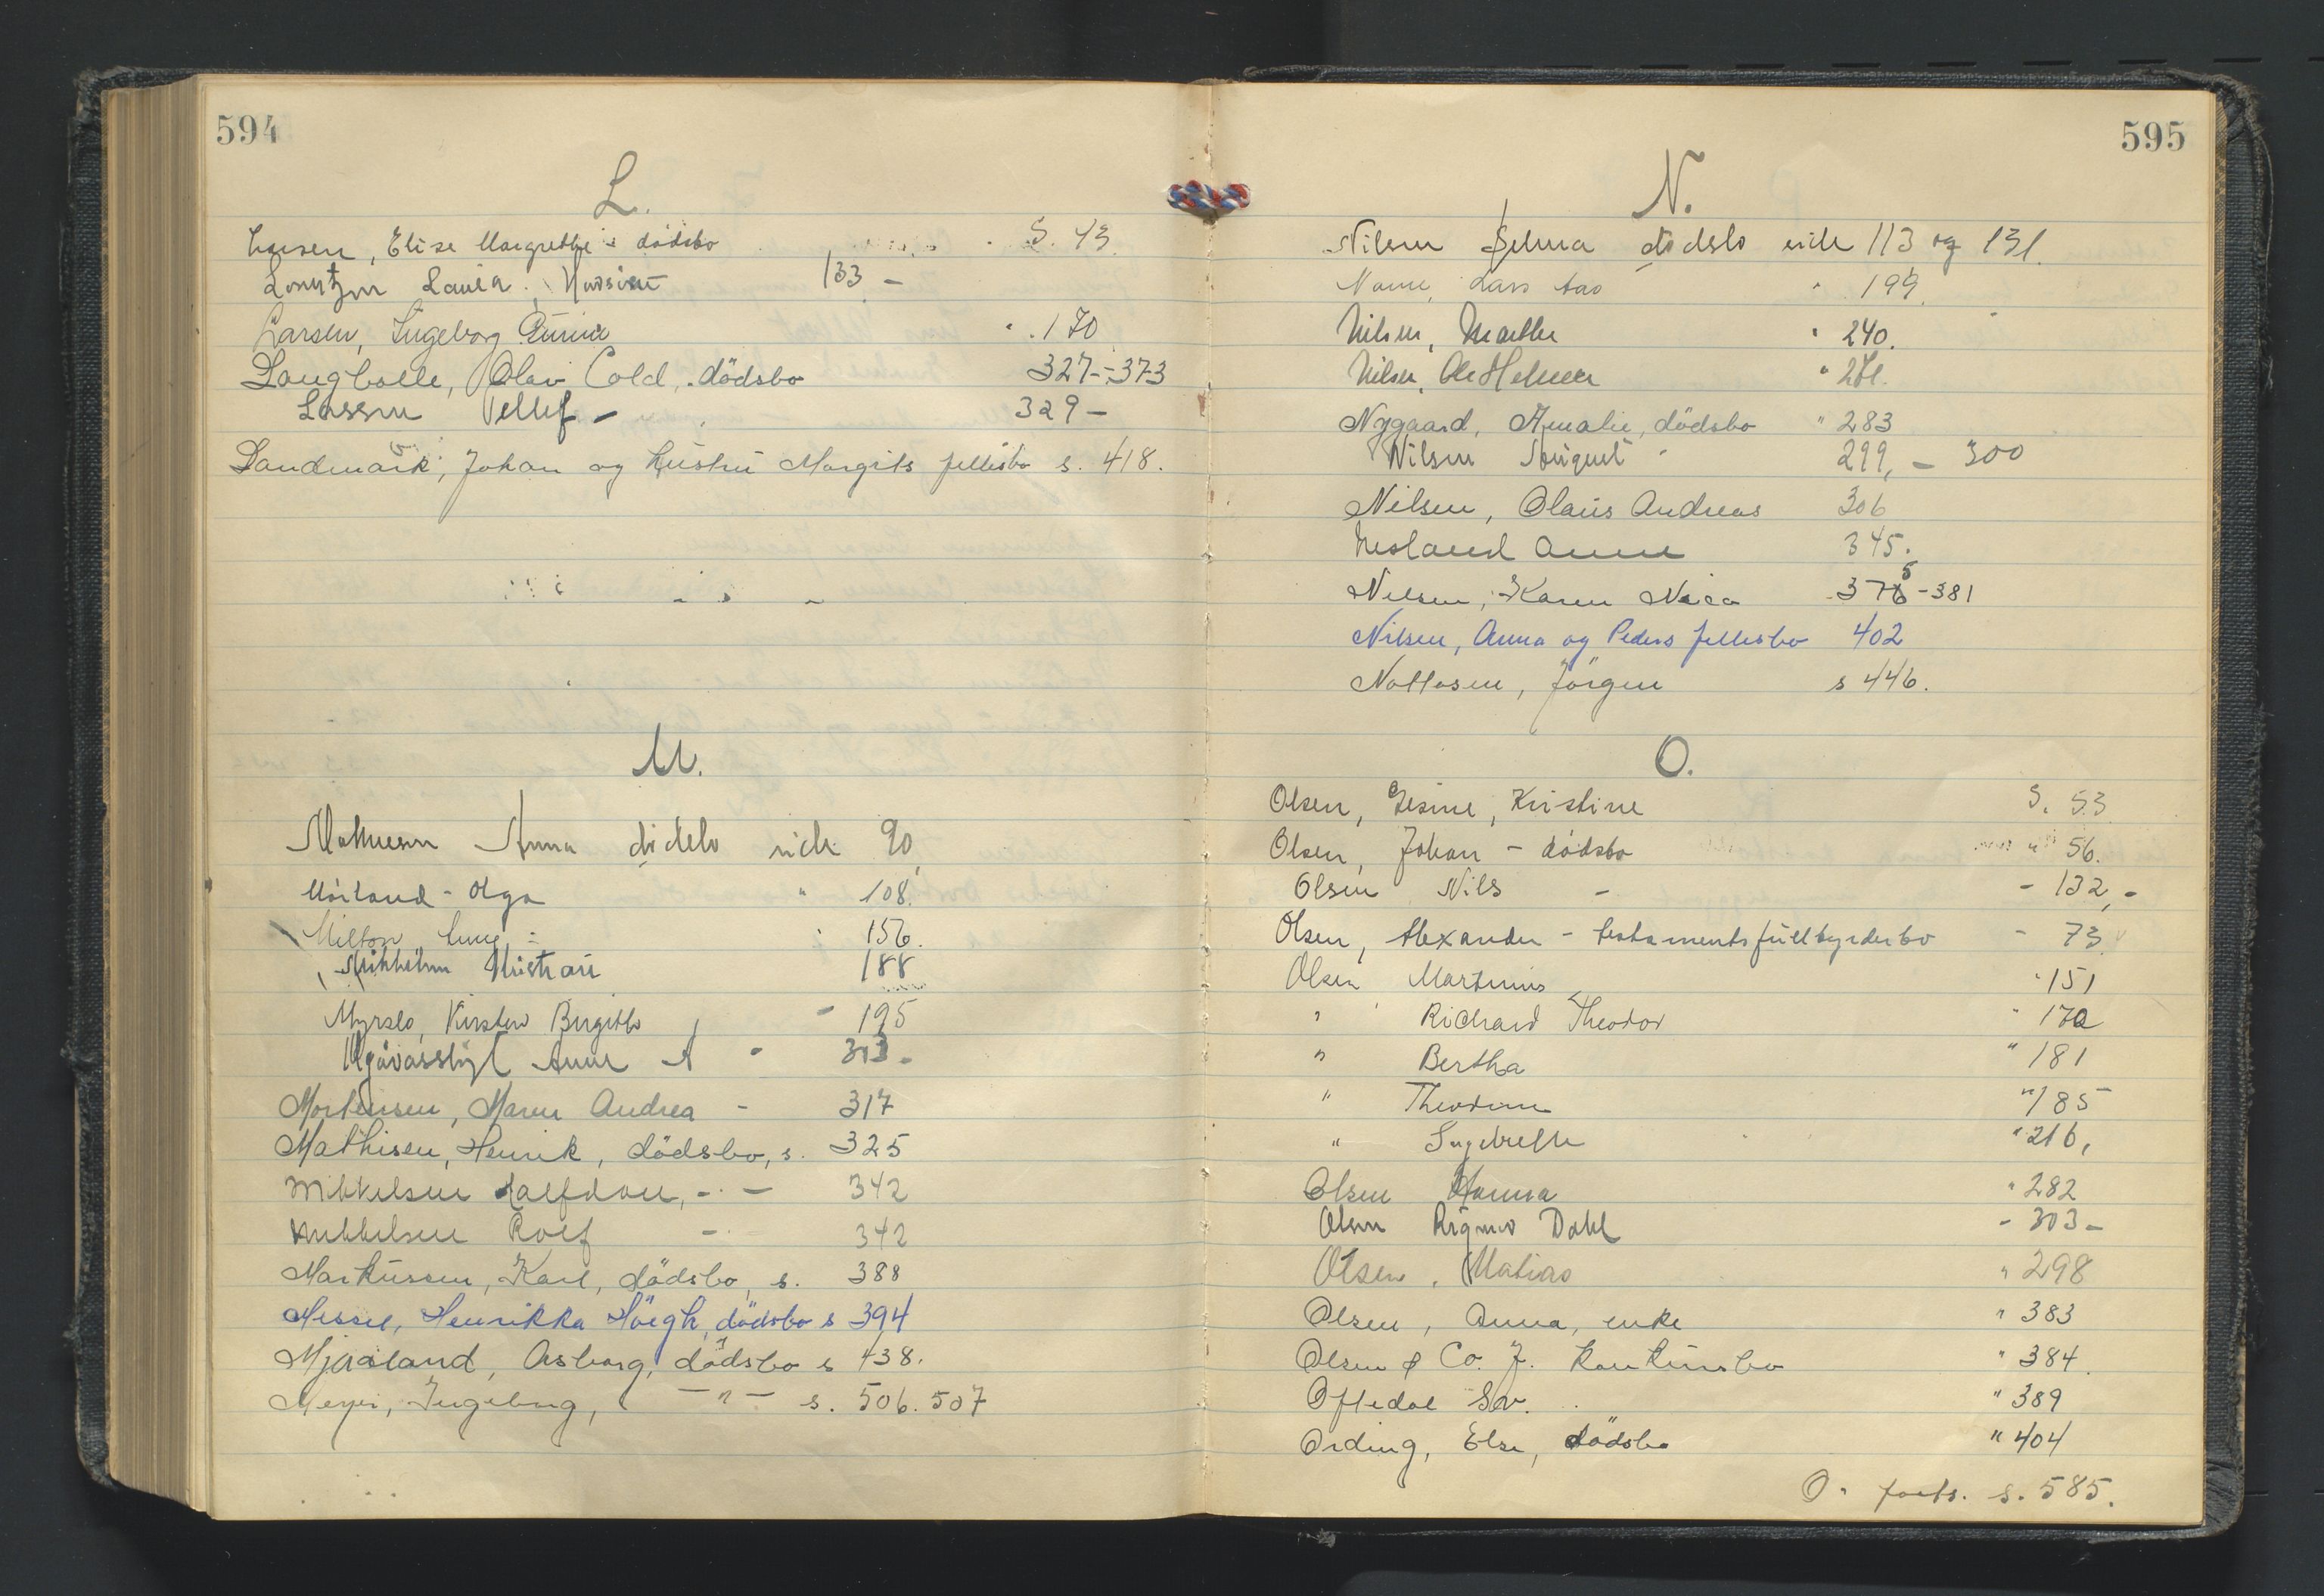 594
L.
Larsen, Elise Margrethe's dödsbo S. 43.
Lorentzen Laura 133 -
Larsen, Ingeborg " 170
Langballe, Olav Cold, dödsbo 327-373
Lassen Tellef - 329 -
Landmark, Johan og hustru Margits fellesbo s. 418.
M.
Mathiesen Anna dødsbo side 90,
Mörland - Olga " 108.
Milton " 156.
188
Myrsto, Kirsten Birgitte - 195
Anne A - 303 -
Mortensen, Maren Andrea - 317
Mathisen, Henrik, dödsbo, s. 325
Mikkelsen Halfdan, - - 342
Mikkelsen Rolf - 342
Markussen, Karl, dödsbo, s. 388
Messel, Henrikka Höegh, dödsbo s 394
Mjaaland, Asborg, dödsbo s 438.
Meyer, Ingeborg, - " - s. 506. 507
595
N.
Nilsen Selma dødsbo side 113 og 131.
Lars Aas " 199.
Nilsen, Marthe " 240.
Nilsen, Ole Helmer "
Nygaard, Amalie, dödsbo " 283
Nilsen August - 299, - 300
Nilsen, Olaus Andreas 306
Nesland Anne 345.
Nilsen, Karen 375-381
Nilsen, Anna og Peders fellesbo 402
Nottosen, Jörgen s 446.
O.
Olsen, Gesine, Kristine S. 53
Olsen, Johan - dödsbo " 56.
Olsen Nils - - 132,-
Olsen, Alexander - testamentsfullbyrderbo - 73
Olsen Martinius " 151
" Richard Theodor " 170
" Bertha " 181
" Theodine " 185
" Ingebreth " 216,
Olsen Hanna " 282
Olsen Rigmor Dahl - 303 -
Olsen, Matias " 298
Olsen, Anna, enke " 383
Olsen & Co. J. konkursbo " 384.
Oftedal Sv. " 389
Ording, Else, dödsbo " 404
O. forts. s. 585.